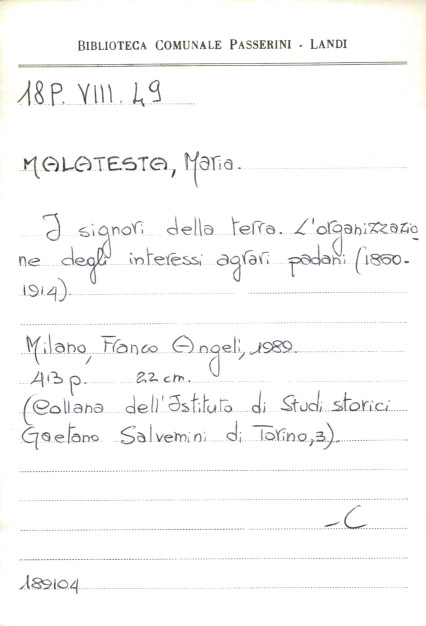 BIBLIOTECA COMUNALE PASSERINI - LANDI
18P. VIII. 49
MALATESTA, Maria.
I signori della terra. L'organizzazio
ne degli interessi agrari padani (1860-
1914).
Milano, Franco Angeli, 1989.
413 p. 22 cm.
(Collana dell'Istituto di Studi storici
Gaetano Salvemini di Torino, 3).
-C
189104